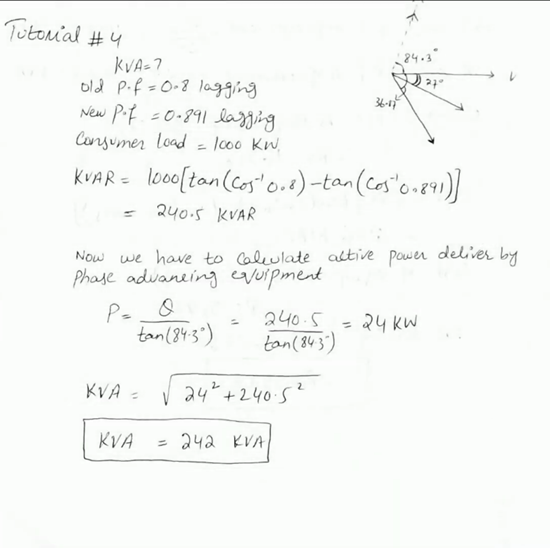 Tutorial # 4
KVA=?
old P.f = 0.8 lagging
New P.f = 0.891 lagging
Consumer load = 1000 KW
84.3°
27°
36.87
KVAR = 1000[tan(Cos⁻¹0.8)-tan(Cos⁻¹0.891)]
= 240.5 KVAR
Now we have to Calculate active power deliver by
Phase advancing equipment
P = Q / tan(84.3°) = 240.5 / tan(84.3°) = 24 KW
KVA = √24²+240.5²
KVA = 242 KVA